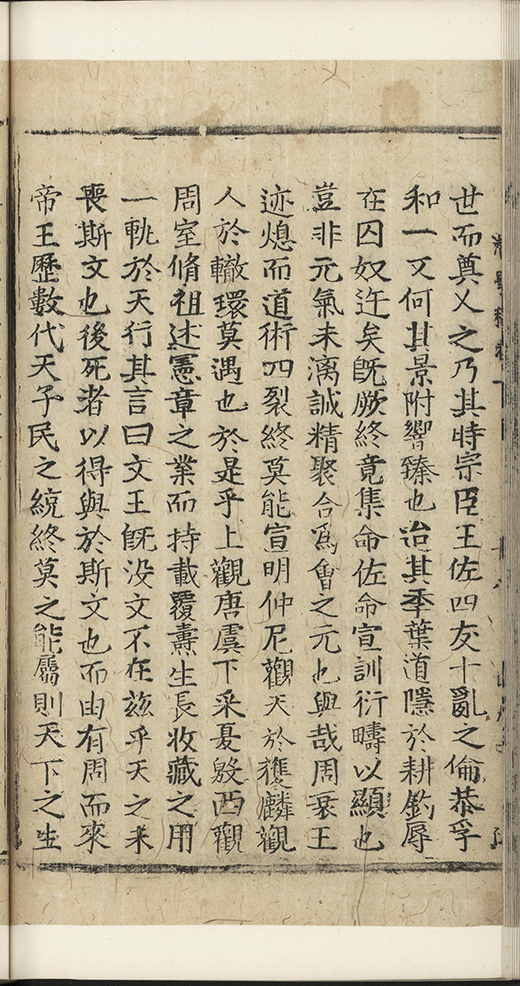 世而奠乂之乃其時宗臣王佐四友十亂之倫恭孚
和一又何其景附響臻也迨其季葉道隱於耕釣辱
在囚奴迕矣旣厥終竟集命佐命宣訓衍疇以顯也
豈非元氣未漓誠精聚合爲會之元也與哉周衰王
迹熄而道術四裂終莫能宣明仲尼觀天於獲麟觀
人於轍環莫遇也於是乎上觀唐虞下采夏殷西觀
周室脩祖述憲章之業而持載覆燾生長收藏之用
一軌於天行其言曰文王旣没文不在兹乎天之未
喪斯文也後死者以得與於斯文也而由有周而來
帝王歷數代天子民之統終莫之能屬則天下之生